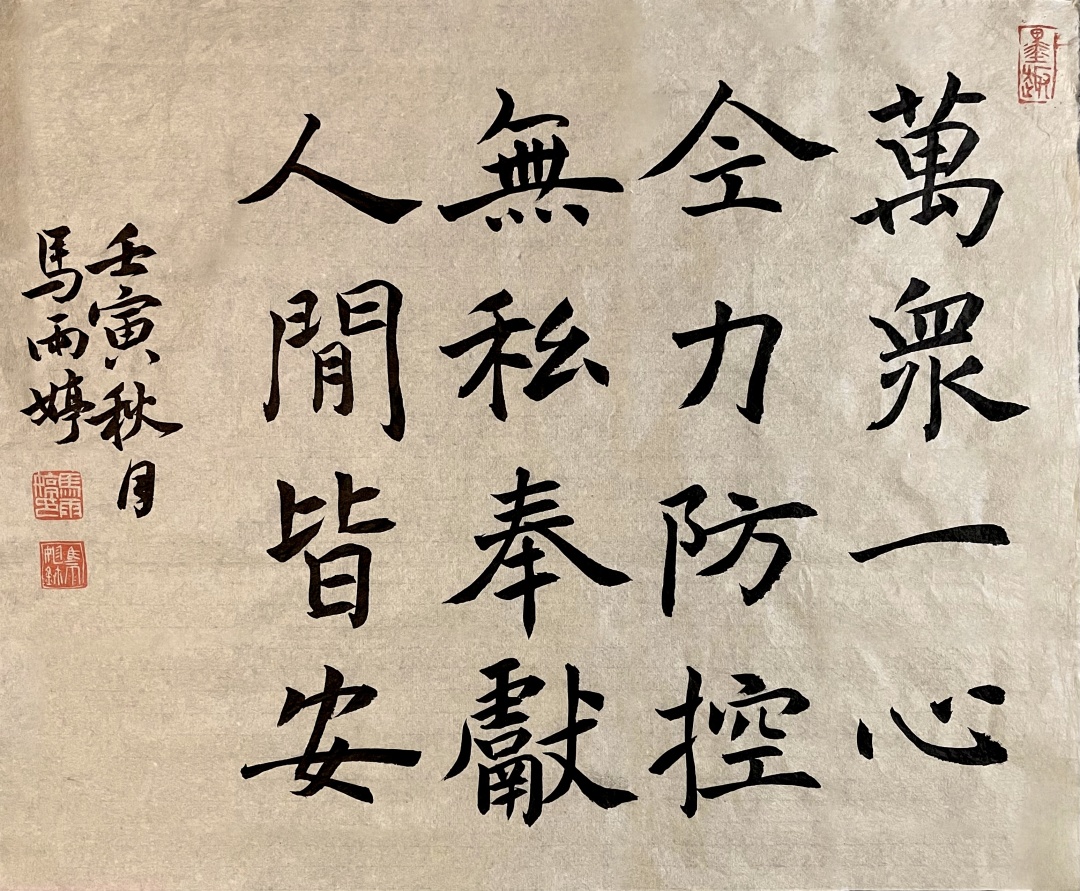 墨趣
萬衆一心
仝力防控
無私奉獻
人閒皆安
壬寅秋月
馬雨婷
馬雨婷印